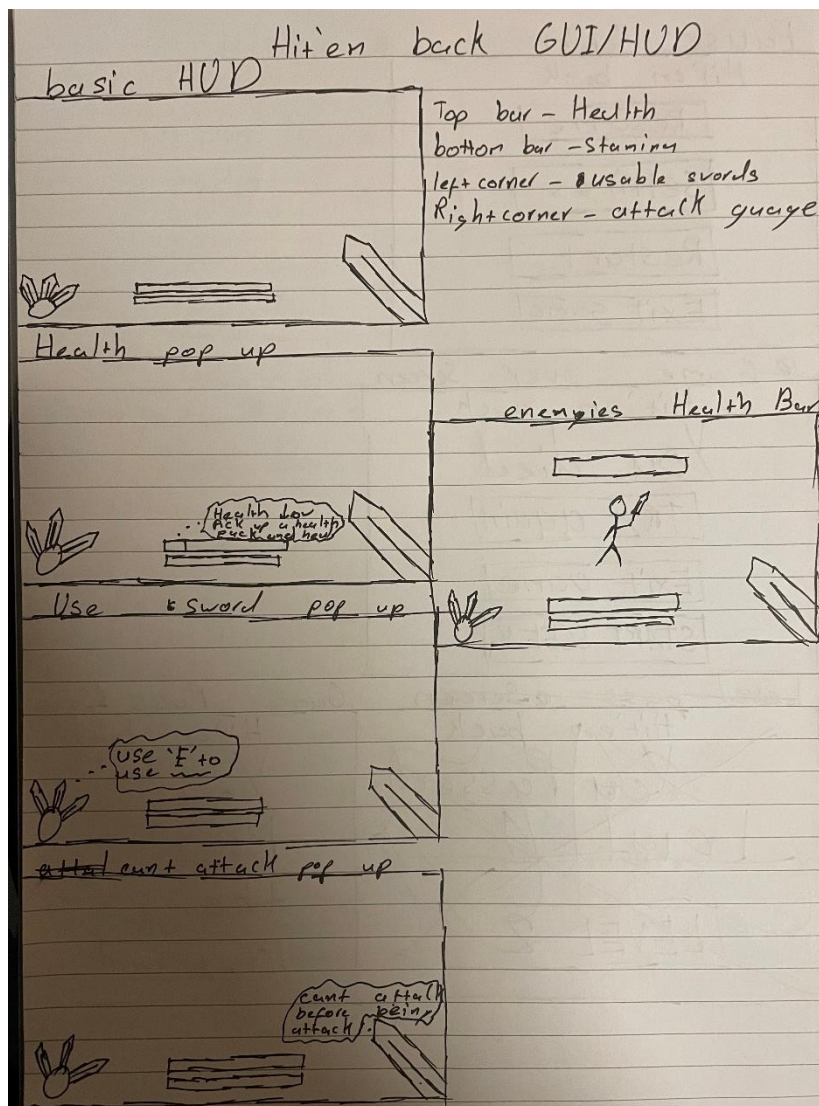 Hit'en back GUI/HUD
basic HUD
Top bar - Health
bottom bar - Stamina
left corner - usable swords
Right corner - attack guage
Health pop up
Health low
Pick up a health
pack and heal
enemies Health Bar
Use sword pop up
use 'E' to
use
cant attack pop up
cant attack
before being
attack